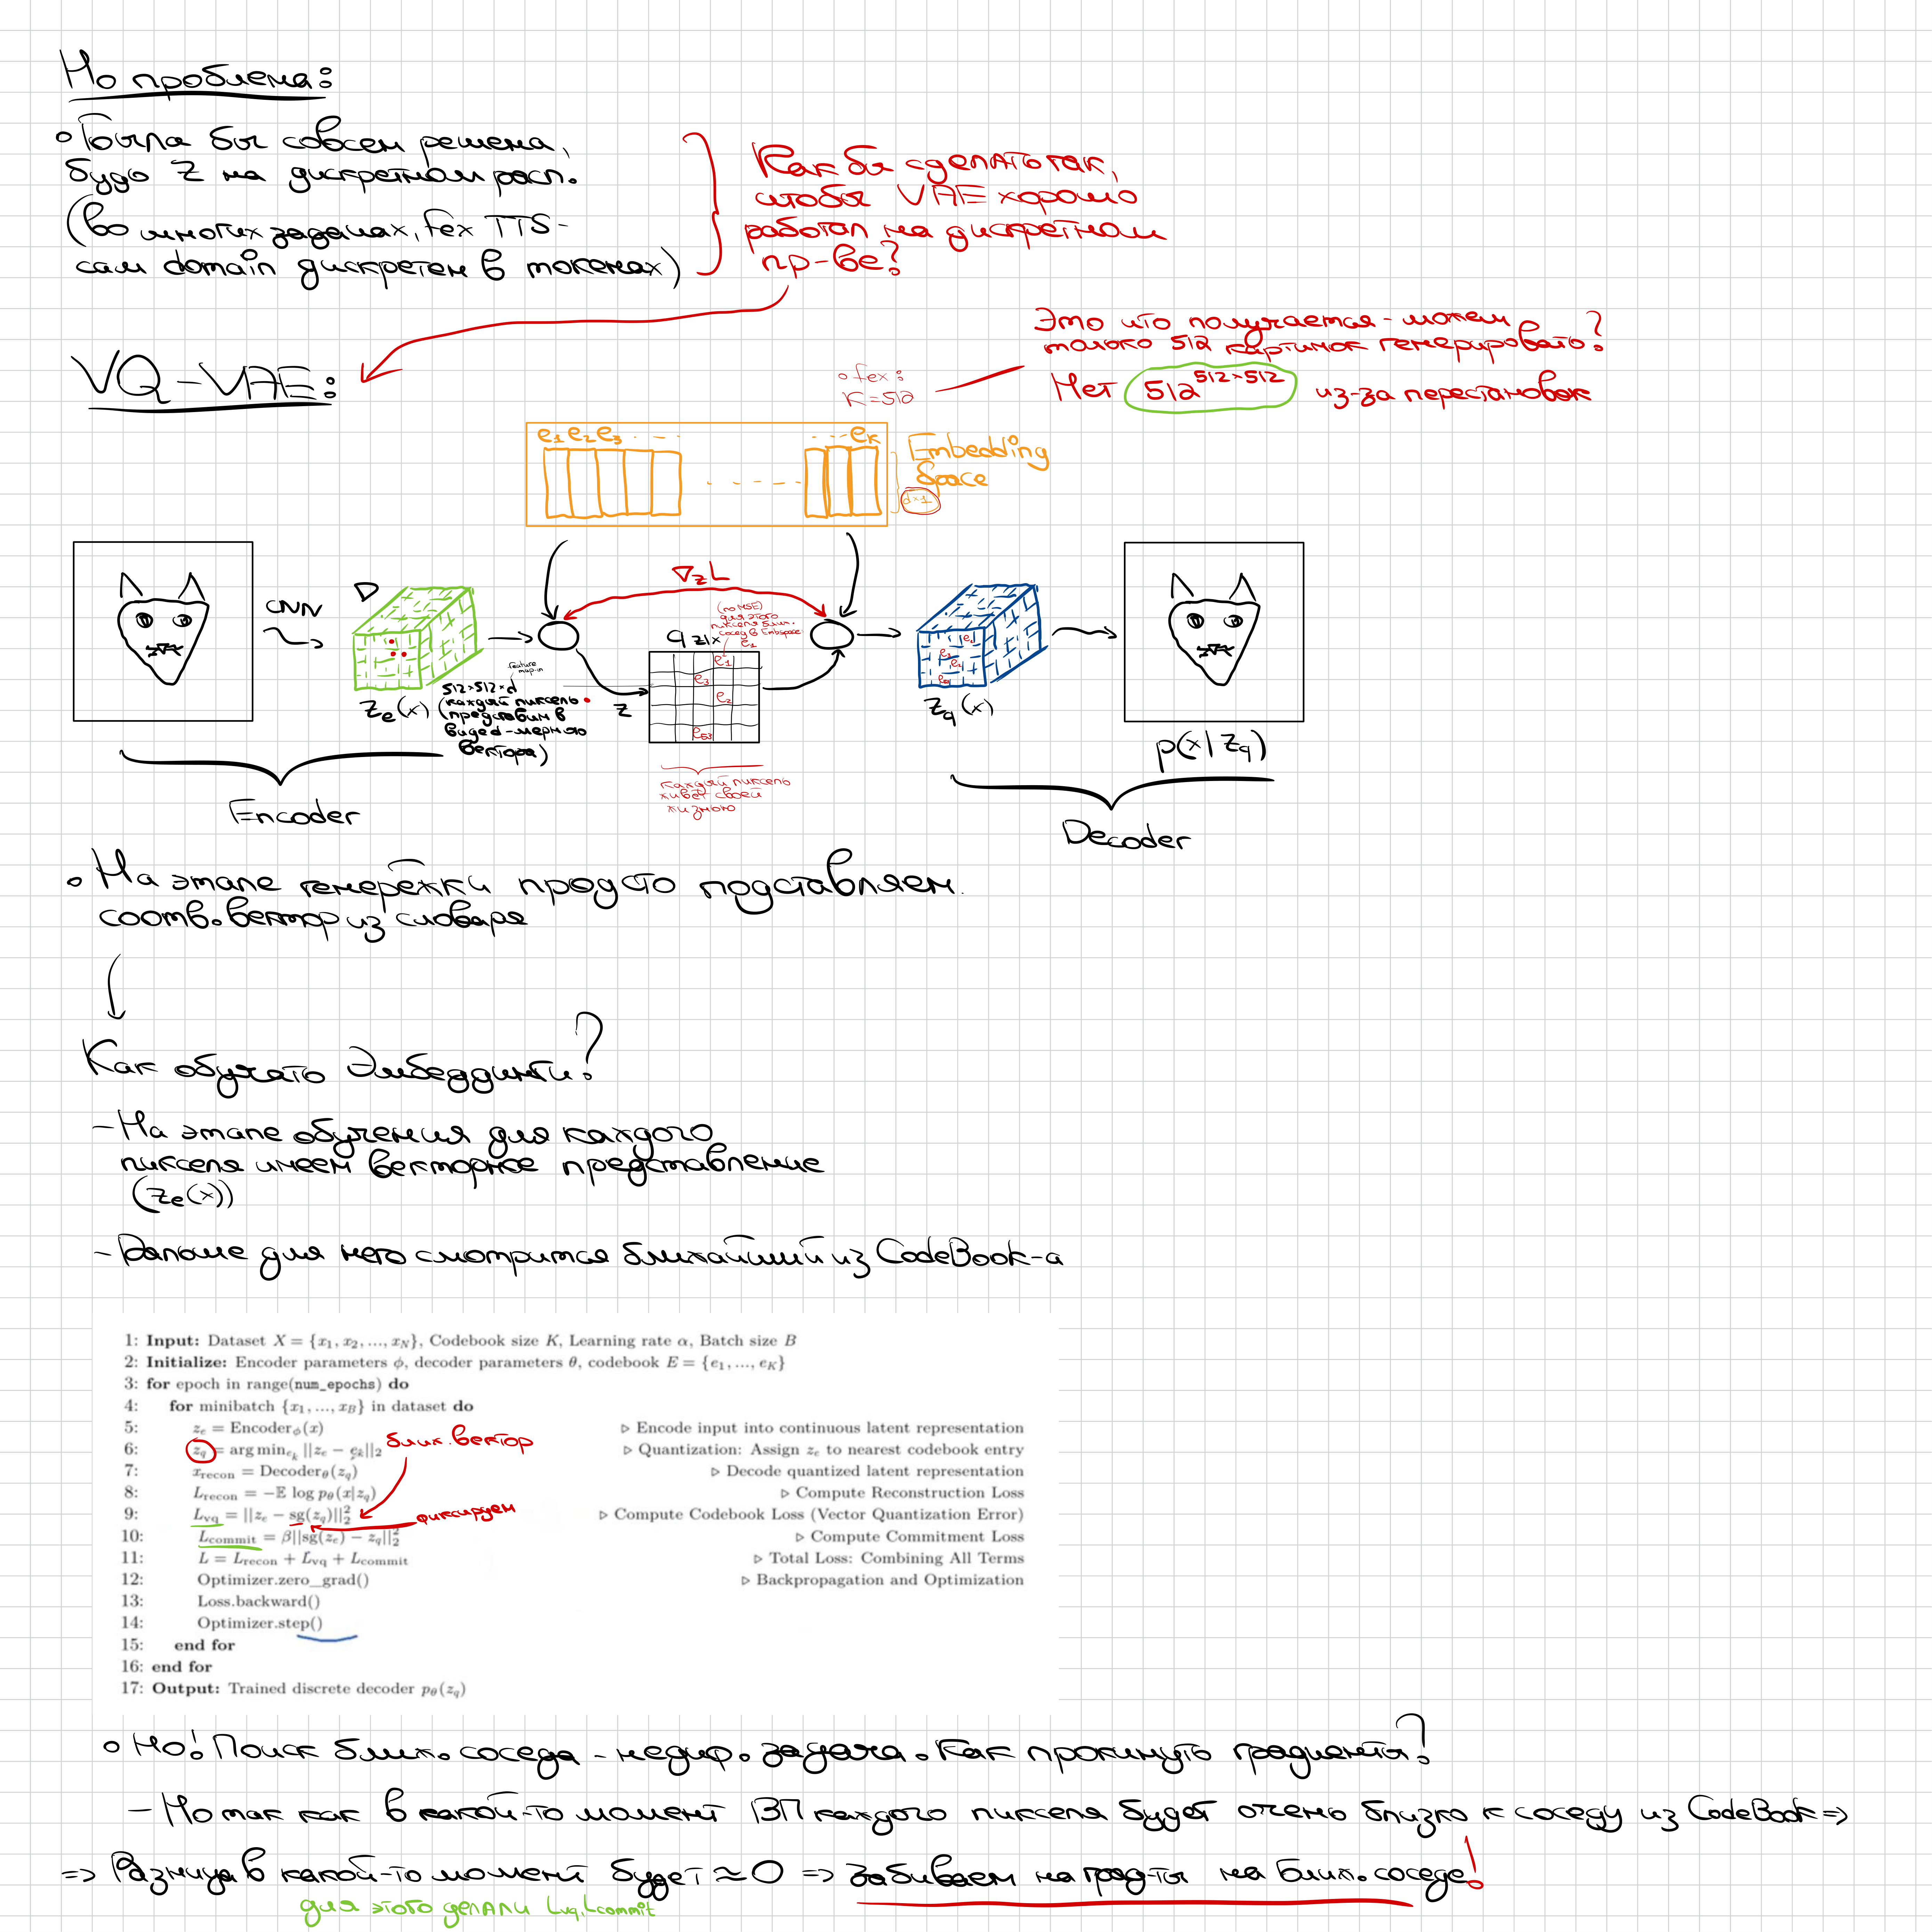 Но проблема:
• Была бы совсем решена,
будь z на дискретном расп.
(во многих задачах, fex TTS-
сам domain дискретен в токенах)
Как бы сделать так,
чтобы VAE хорошо
работал на дискретном
пр-ве?
VQ-VAE:
Это что получается - можем
только 512 картинок генерировать?
Нет 512^512×512 из-за перестановок
• fex:
K=512
e1 e2 e3 . . - .
. . . eK
Embedding
Space
d×1
CNN
D
∇z L
(по MSE)
для этого
пикселя ближ.
сосед в Embspace
e1
q z|x
e1
e3
e2
e53
z
feature
map-ин
512×512×d
(каждый пиксель •
представим в
виде d-мерного
вектора)
ze(x)
каждый пиксель
живёт своей
жизнью
zq(x)
p(x|zq)
Encoder
Decoder
• На этапе генерёжки просто подставляем
соотв. вектор из словаря
Как обучать Эмбеддинги?
- На этапе обучения для каждого
пикселя имеем векторное представление
(ze(x))
- Дальше для него смотрится ближайший из CodeBook-а
1: Input: Dataset X = {x1, x2, ..., xN}, Codebook size K, Learning rate α, Batch size B
2: Initialize: Encoder parameters ϕ, decoder parameters θ, codebook E = {e1, ..., eK}
3: for epoch in range(num_epochs) do
4: for minibatch {x1, ..., xB} in dataset do
5: ze = Encoderϕ(x) ▷ Encode input into continuous latent representation
6: zq = arg min_ek ||ze − ek||2 ▷ Quantization: Assign ze to nearest codebook entry
ближ. вектор
7: xrecon = Decoderθ(zq) ▷ Decode quantized latent representation
8: Lrecon = −E log pθ(x|zq) ▷ Compute Reconstruction Loss
9: Lvq = ||ze − sg(zq)||²2 ▷ Compute Codebook Loss (Vector Quantization Error)
фиксируем
10: Lcommit = β||sg(ze) − zq||²2 ▷ Compute Commitment Loss
11: L = Lrecon + Lvq + Lcommit ▷ Total Loss: Combining All Terms
12: Optimizer.zero_grad() ▷ Backpropagation and Optimization
13: Loss.backward()
14: Optimizer.step()
15: end for
16: end for
17: Output: Trained discrete decoder pθ(zq)
• Но! Поиск ближ. соседа - недиф. задача. Как прокинуть градиенты?
- Но так как в какой-то момент ВП каждого пикселя будет очень близко к соседу из CodeBook =>
=> Разница в какой-то момент будет ≈0 => забиваем на град-ты на ближ. соседе!
для этого делали Lvq, Lcommit